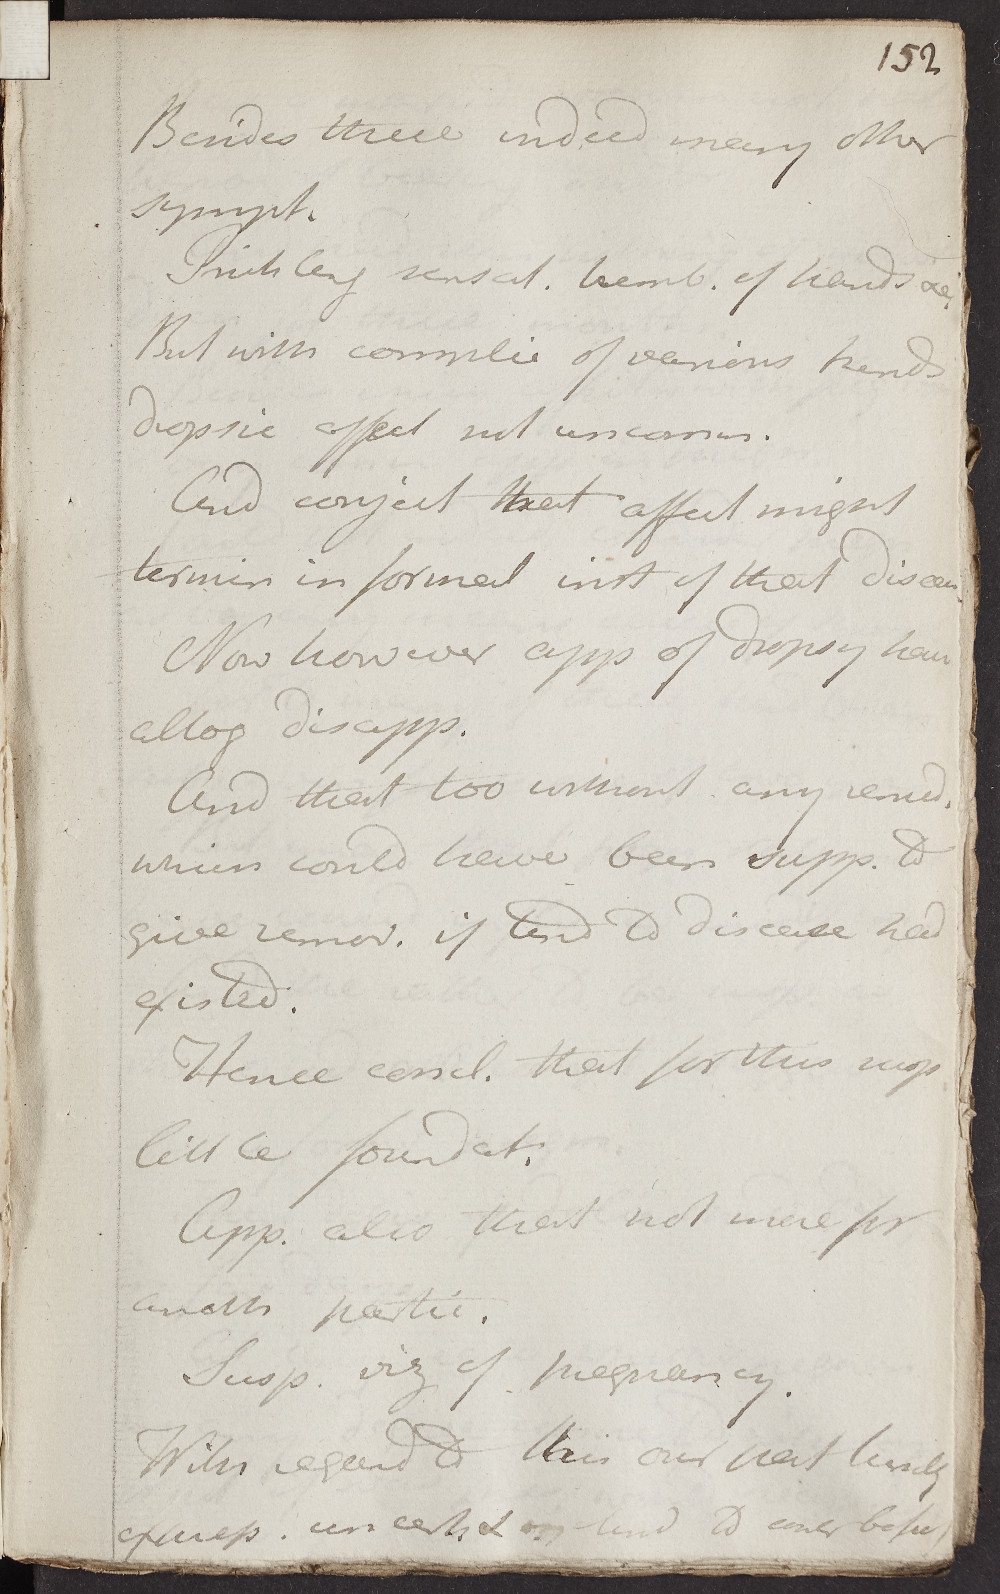 152
Besides these indeed many other
sympt.
Prickling sensat. tremb. of hands &c
But with complic of various kinds
dropsic affect not uncomm.
And conject that affect might
termin in formal inst of that diseas.
Now however app of dropsy have
altog disapp.
And that too without any remed.
which could have been supp. to
give remov. if tend to disease had
existed.
Hence concl. that for this susp
little foundat.
App. also that not more for
anoth partic.
Susp. viz of pregnancy.
With regard to this our pat herself
express. uncert & tend to